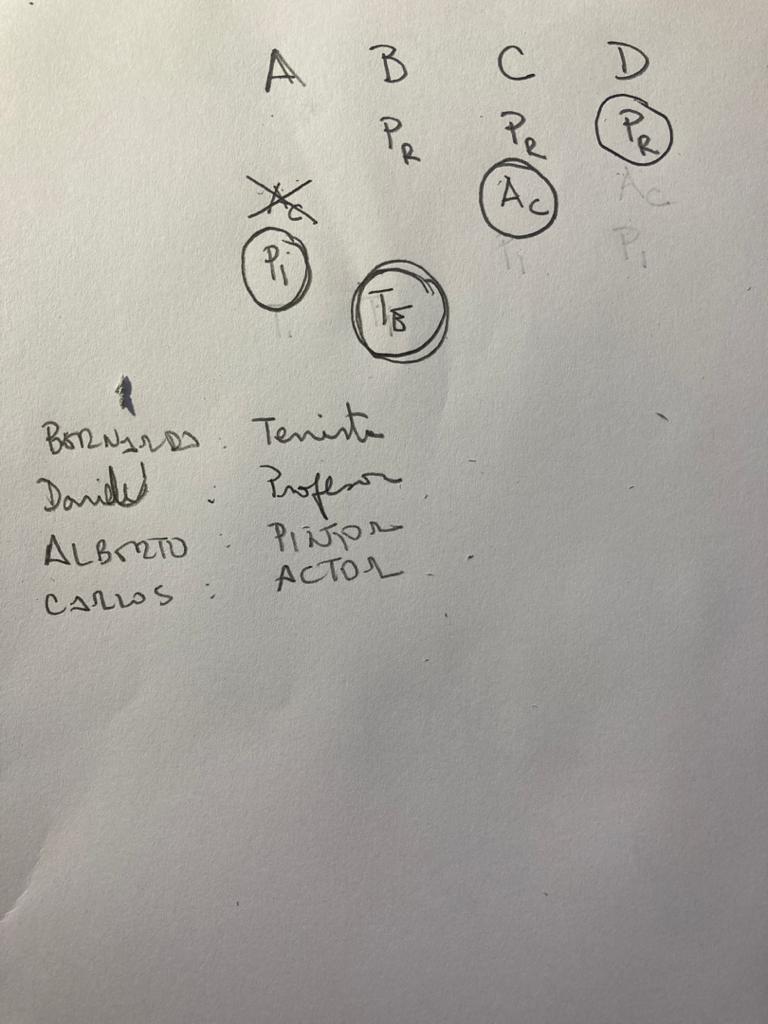 A B C D
PR PR PR
Ac Ac Ac
Pi Pi Pi
TE
BERNARDO : Tenista
Daniel : Profesor
ALBERTO : PINTOR
CARLOS : ACTOR